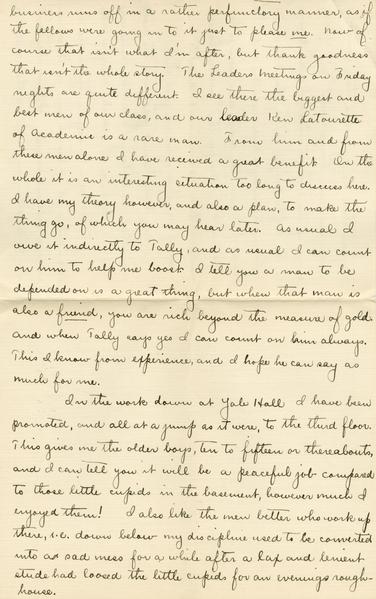 business runs off in a rather perfunctory manner, as if
the fellows were going in to it just to please me. Now of
course that isn't what I'm after, but thank goodness
that isn't the whole story. The Leaders Meetings on Friday
nights are quite different. I see there the biggest and
best men of our class, and our leader Ken Latourette
of Academic is a rare man. From him and from
these men alone I have received a great benefit. On the
whole it is an interesting situation too long to discuss here.
I have my theory however, and also a plan, to make the
thing go, of which you may hear later. As usual I
owe it indirectly to Tally, and as usual I can count
on him to help me boost. I tell you a man to be
depended on is a great thing, but when that man is
also a friend, you are rich beyond the measure of gold.
and when Tally says yes I can count on him always.
This I know from experience, and I hope he can say as
much for me.
In the work down at Yale Hall I have been
promoted, and all at a jump as it were, to the third floor.
This gives me the older boys, ten to fifteen or thereabouts,
and I can tell you it will be a peaceful job compared
to those little cupids in the basement, however much I
enjoyed them! I also like the men better who work up
there, i.e. down below my discipline used to be converted
into a sad mess for a while after a lax and lenient
stude had loosed the little cupids for an evenings rough-
house.